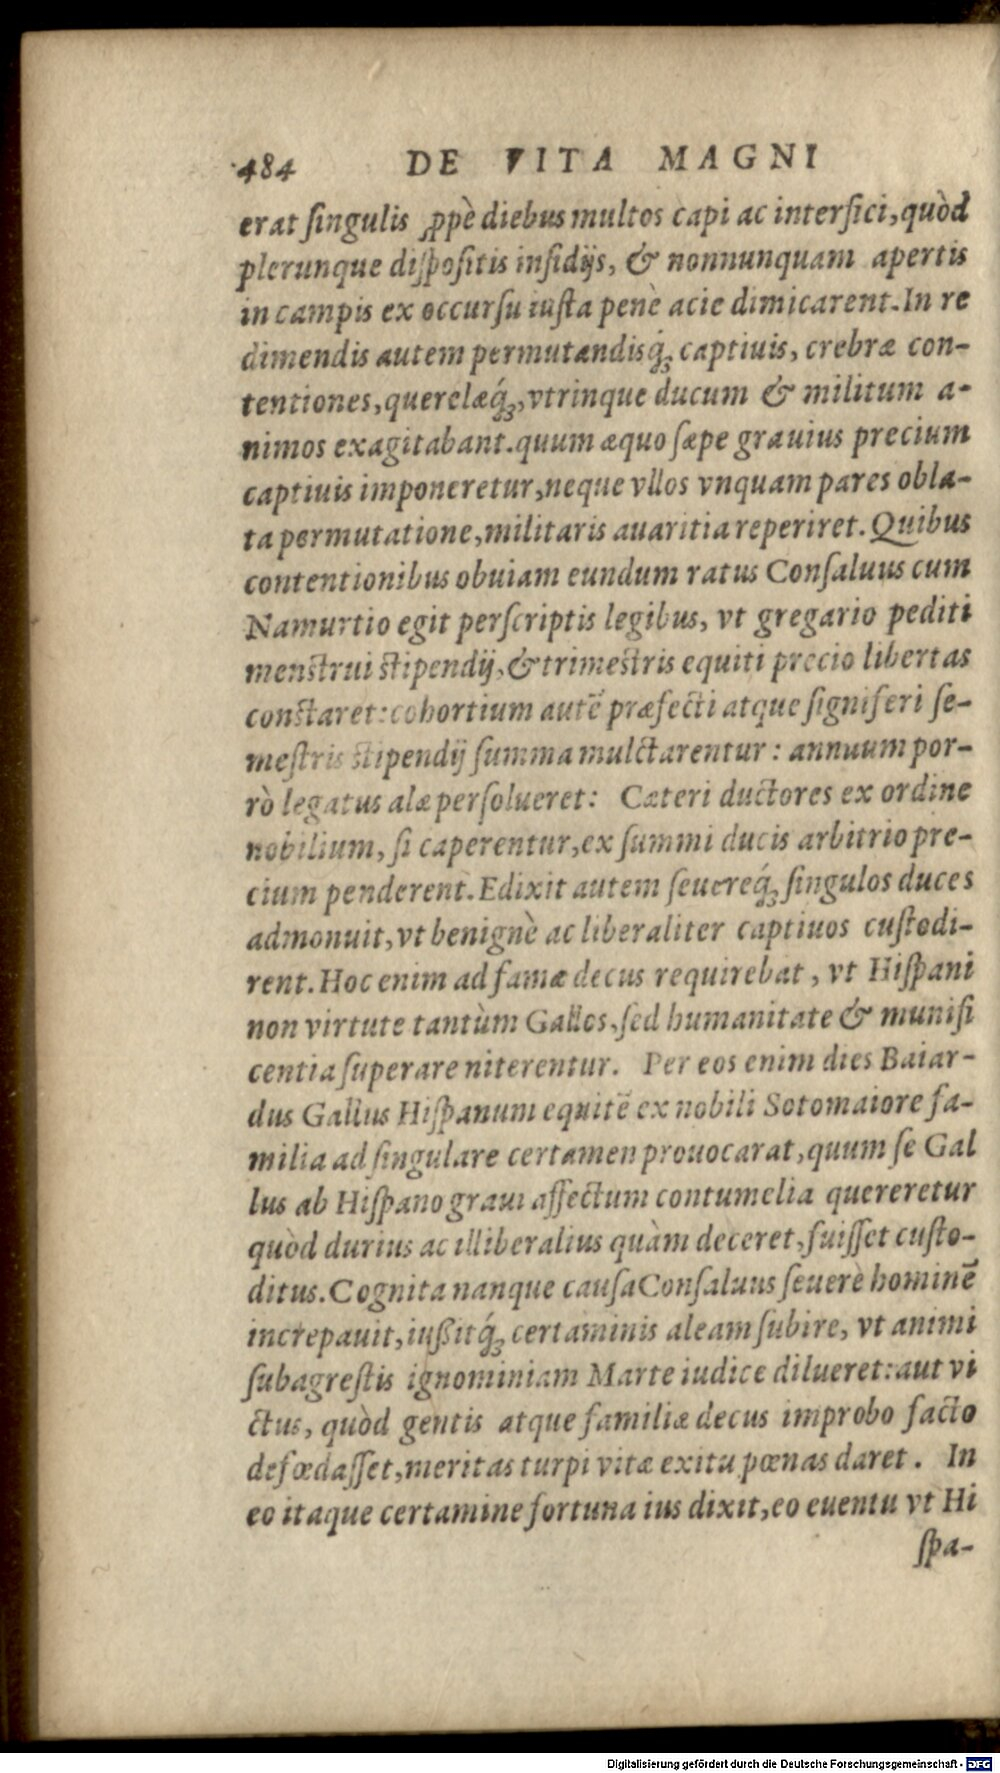 484 DE VITA MAGNI
erat ſingulis ꝓpè diebus multos capi ac interfici, quòd
plerunque diſpoſitis inſidijs, & nonnunquam apertis
in campis ex occurſu iuſta penè acie dimicarent. In re
dimendis autem permutandisq́ꝫ captiuis, crebræ con-
tentiones, querelæq́ꝫ, vtrinque ducum & militum a-
nimos exagitabant. quum æquo ſæpe grauius precium
captiuis imponeretur, neque vllos vnquam pares obla-
ta permutatione, militaris auaritia reperiret. Quibus
contentionibus obuiam eundum ratus Conſaluus cum
Namurtio egit perſcriptis legibus, vt gregario pediti
menſtrui ſtipendij, & trimeſtris equiti precio libertas
conſtaret: cohortium autē præfecti atque ſigniferi ſe-
meſtris ſtipendij ſumma mulctarentur: annuum por-
rò legatus alæ perſolueret: Cæteri ductores ex ordine
nobilium, ſi caperentur, ex ſummi ducis arbitrio pre-
cium penderent. Edixit autem ſeuereq́ꝫ ſingulos duces
admonuit, vt benignè ac liberaliter captiuos cuſtodi-
rent. Hoc enim ad famæ decus requirebat, vt Hiſpani
non virtute tantùm Gallos, ſed humanitate & munifi
centia ſuperare niterentur. Per eos enim dies Baiar-
dus Gallus Hiſpanum equitē ex nobili Sotomaiore fa-
milia ad ſingulare certamen prouocarat, quum ſe Gal
lus ab Hiſpano graui affectum contumelia quereretur
quòd durius ac illiberalius quàm deceret, fuiſſet cuſto-
ditus. Cognita nanque cauſa Conſaluus ſeuerè hominē
increpauit, iußitq́ꝫ certaminis aleam ſubire, vt animi
ſubagreſtis ignominiam Marte iudice dilueret: aut vi
ctus, quòd gentis atque familiæ decus improbo facto
defœdaſſet, meritas turpi vitæ exitu pœnas daret. In
eo itaque certamine fortuna ius dixit, eo euentu vt Hi
ſpa-
Digitalisierung gefördert durch die Deutsche Forschungsgemeinschaft - DFG